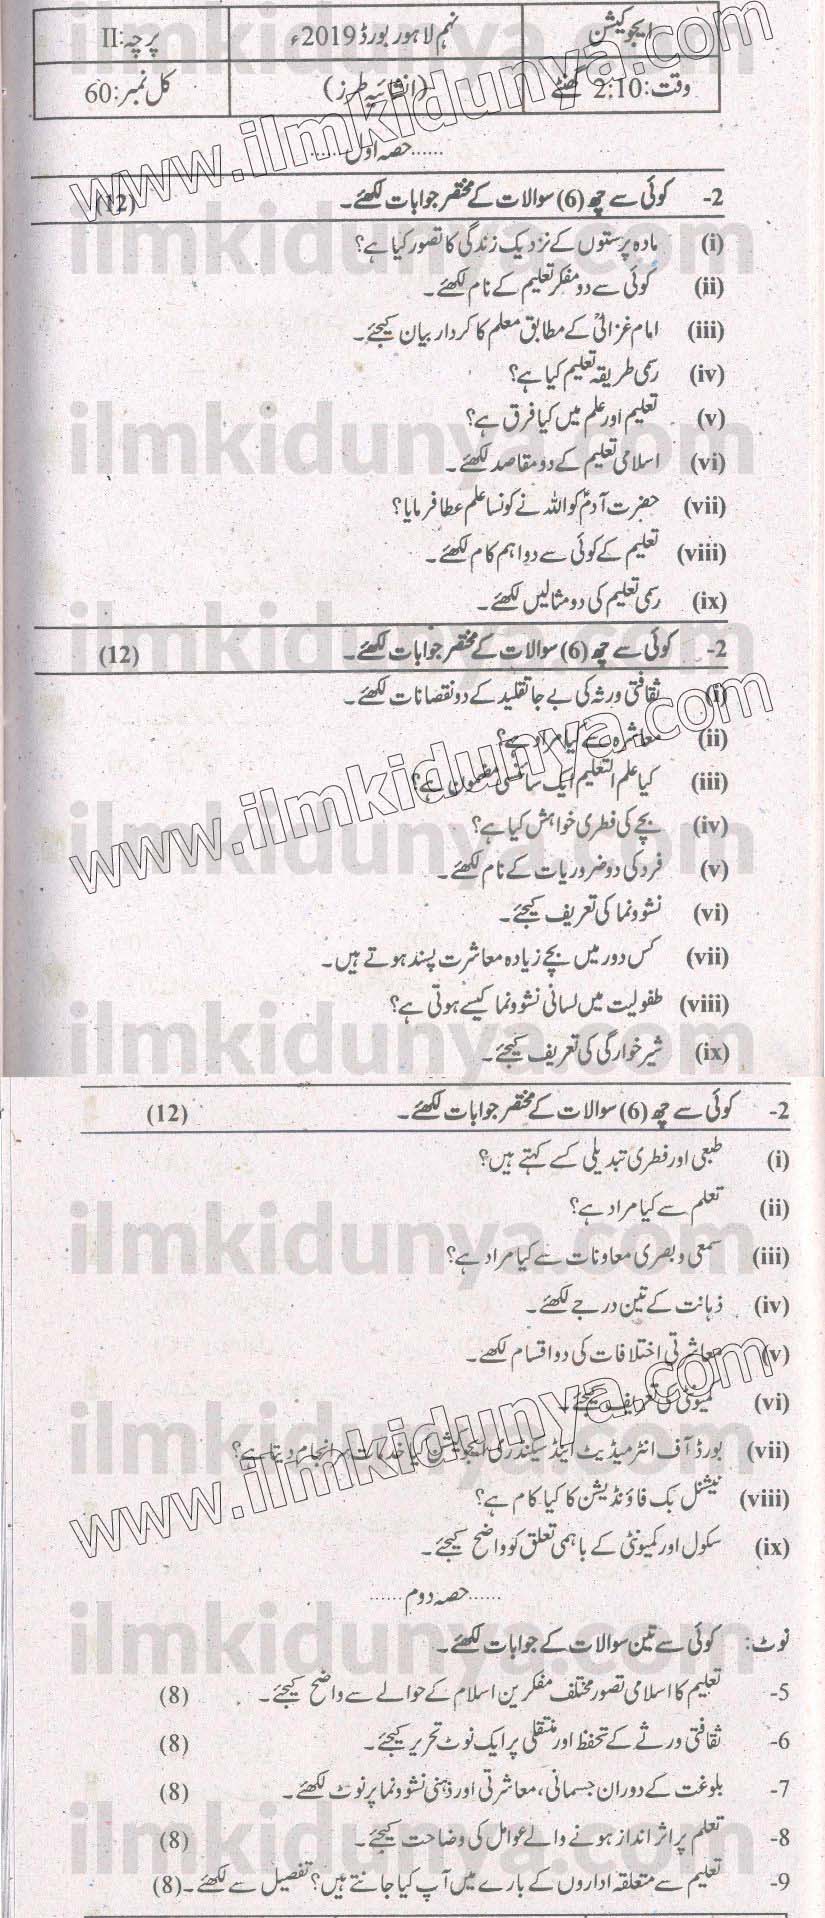 ایجوکیشن نہم لاہور بورڈ 2019ء پرچہ: II
وقت: 2:10 گھنٹے (انشائیہ طرز) کل نمبر: 60
......حصہ اول......
2- کوئی سے چھ (6) سوالات کے مختصر جوابات لکھئے۔ (12)
(i) مادہ پرستوں کے نزدیک زندگی کا تصور کیا ہے؟
(ii) کوئی سے دو مفکر تعلیم کے نام لکھئے۔
(iii) امام غزالیؒ کے مطابق معلم کا کردار بیان کیجئے۔
(iv) رسمی طریقہ تعلیم کیا ہے؟
(v) تعلیم اور علم میں کیا فرق ہے؟
(vi) اسلامی تعلیم کے دو مقاصد لکھئے۔
(vii) حضرت آدمؑ کو اللہ نے کونسا علم عطا فرمایا؟
(viii) تعلیم کے کوئی سے دو اہم کام لکھئے۔
(ix) رسمی تعلیم کی دو مثالیں لکھئے۔
2- کوئی سے چھ (6) سوالات کے مختصر جوابات لکھئے۔ (12)
(i) ثقافتی ورثہ کی بے جا تقلید کے دو نقصانات لکھئے۔
(ii) معاشرہ سے کیا مراد ہے؟
(iii) کیا علم التعلیم ایک سائنسی مضمون ہے؟
(iv) بچے کی فطری خواہش کیا ہے؟
(v) فرد کی دو ضروریات کے نام لکھئے۔
(vi) نشوونما کی تعریف کیجئے۔
(vii) کس دور میں بچے زیادہ معاشرت پسند ہوتے ہیں۔
(viii) طفولیت میں لسانی نشوونما کیسے ہوتی ہے؟
(ix) شیر خوارگی کی تعریف کیجئے۔
2- کوئی سے چھ (6) سوالات کے مختصر جوابات لکھئے۔ (12)
(i) طبعی اور فطری تبدیلی کسے کہتے ہیں؟
(ii) تعلم سے کیا مراد ہے؟
(iii) سمعی و بصری معاونات سے کیا مراد ہے؟
(iv) ذہانت کے تین درجے لکھئے۔
(v) معاشرتی اختلافات کی دو اقسام لکھے۔
(vi) کمیونٹی کی تعریف کیجئے۔
(vii) بورڈ آف انٹرمیڈیٹ اینڈ سیکنڈری ایجوکیشن کیا خدمات سرانجام دیتا ہے؟
(viii) نیشنل بک فاؤنڈیشن کا کیا کام ہے؟
(ix) سکول اور کمیونٹی کے باہمی تعلق کو واضح کیجئے۔
......حصہ دوم......
نوٹ: کوئی سے تین سوالات کے جوابات لکھئے۔
5- تعلیم کا اسلامی تصور مختلف مفکرین اسلام کے حوالے سے واضح کیجئے۔ (8)
6- ثقافتی ورثے کے تحفظ اور منتقلی پر ایک نوٹ تحریر کیجئے۔ (8)
7- بلوغت کے دوران جسمانی، معاشرتی اور ذہنی نشوونما پر نوٹ لکھئے۔ (8)
8- تعلم پر اثر انداز ہونے والے عوامل کی وضاحت کیجئے۔ (8)
9- تعلیم سے متعلقہ اداروں کے بارے میں آپ کیا جانتے ہیں؟ تفصیل سے لکھئے۔ (8)
www.ilmkidunya.com
www.ilmkidunya.com
www.ilmkidunya.com
ilmkidunya.com
ilmkidunya.com
ilmkidunya.com
ilmkidunya.com
ilmkidunya.com
ilmkidunya.com
ilmkidunya.com
ilmkidunya.com
ilmkidunya.com
ilmkidunya.com